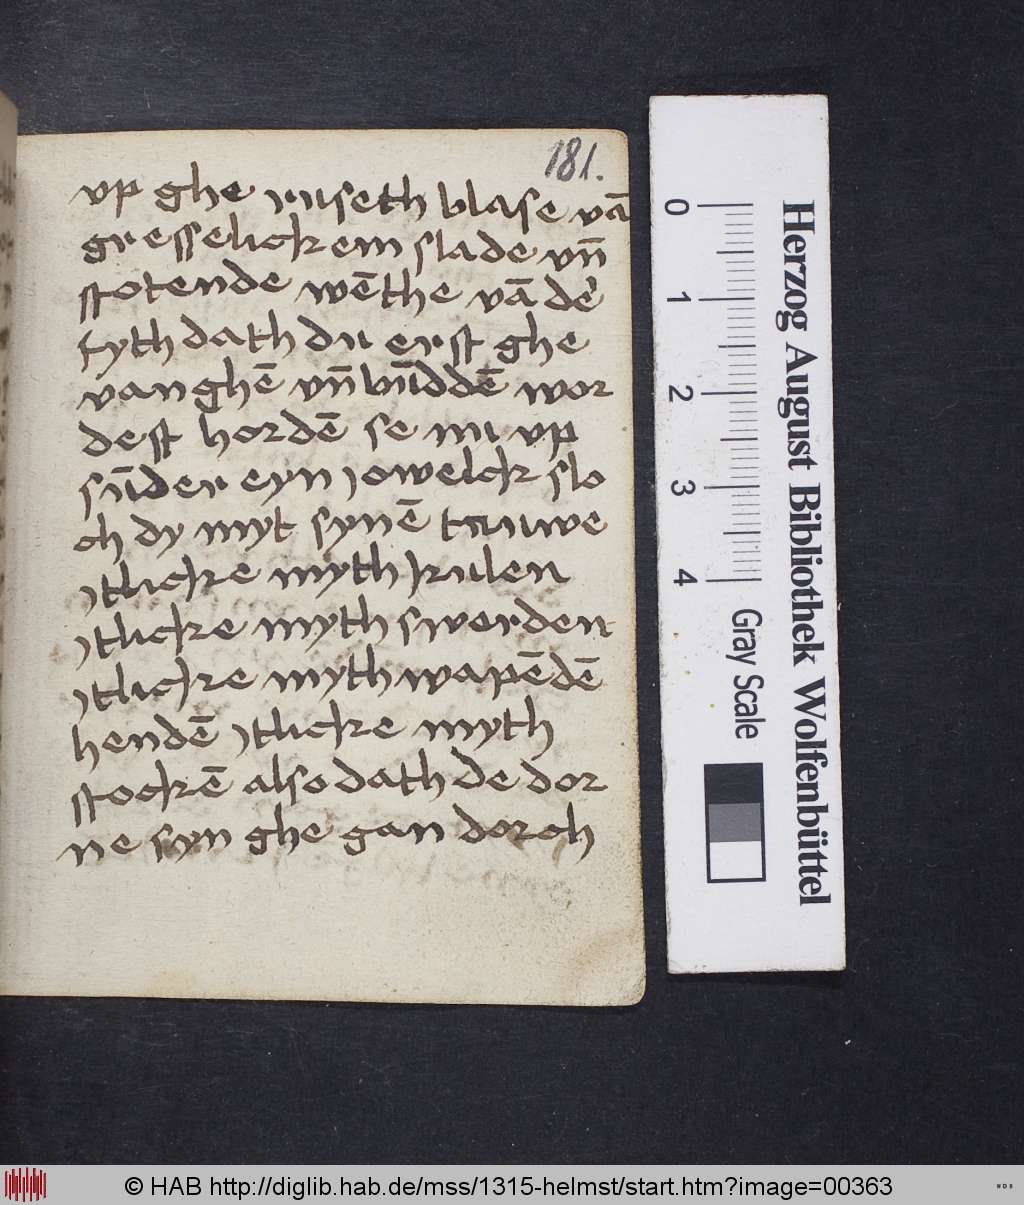 181.
vp ghe ruseth blase vā
gresselickem slade vn̄
stotende wēthe vā dē
syth dath du erst ghe
vanghē vn̄ būddē wor
dest hordē se nu vp
sūder eyn jowelck slo
ch dy myt synē truwe
jtlicke myth kulen
jtlicke myth swerden
jtlicke myth wapēdē
hendē jtlicke myth
stockē also dath de dor
ne syn ghe gan dorch
Herzog August Bibliothek Wolfenbüttel
0 1 2 3 4
Gray Scale
© HAB http://diglib.hab.de/mss/1315-helmst/start.htm?image=00363